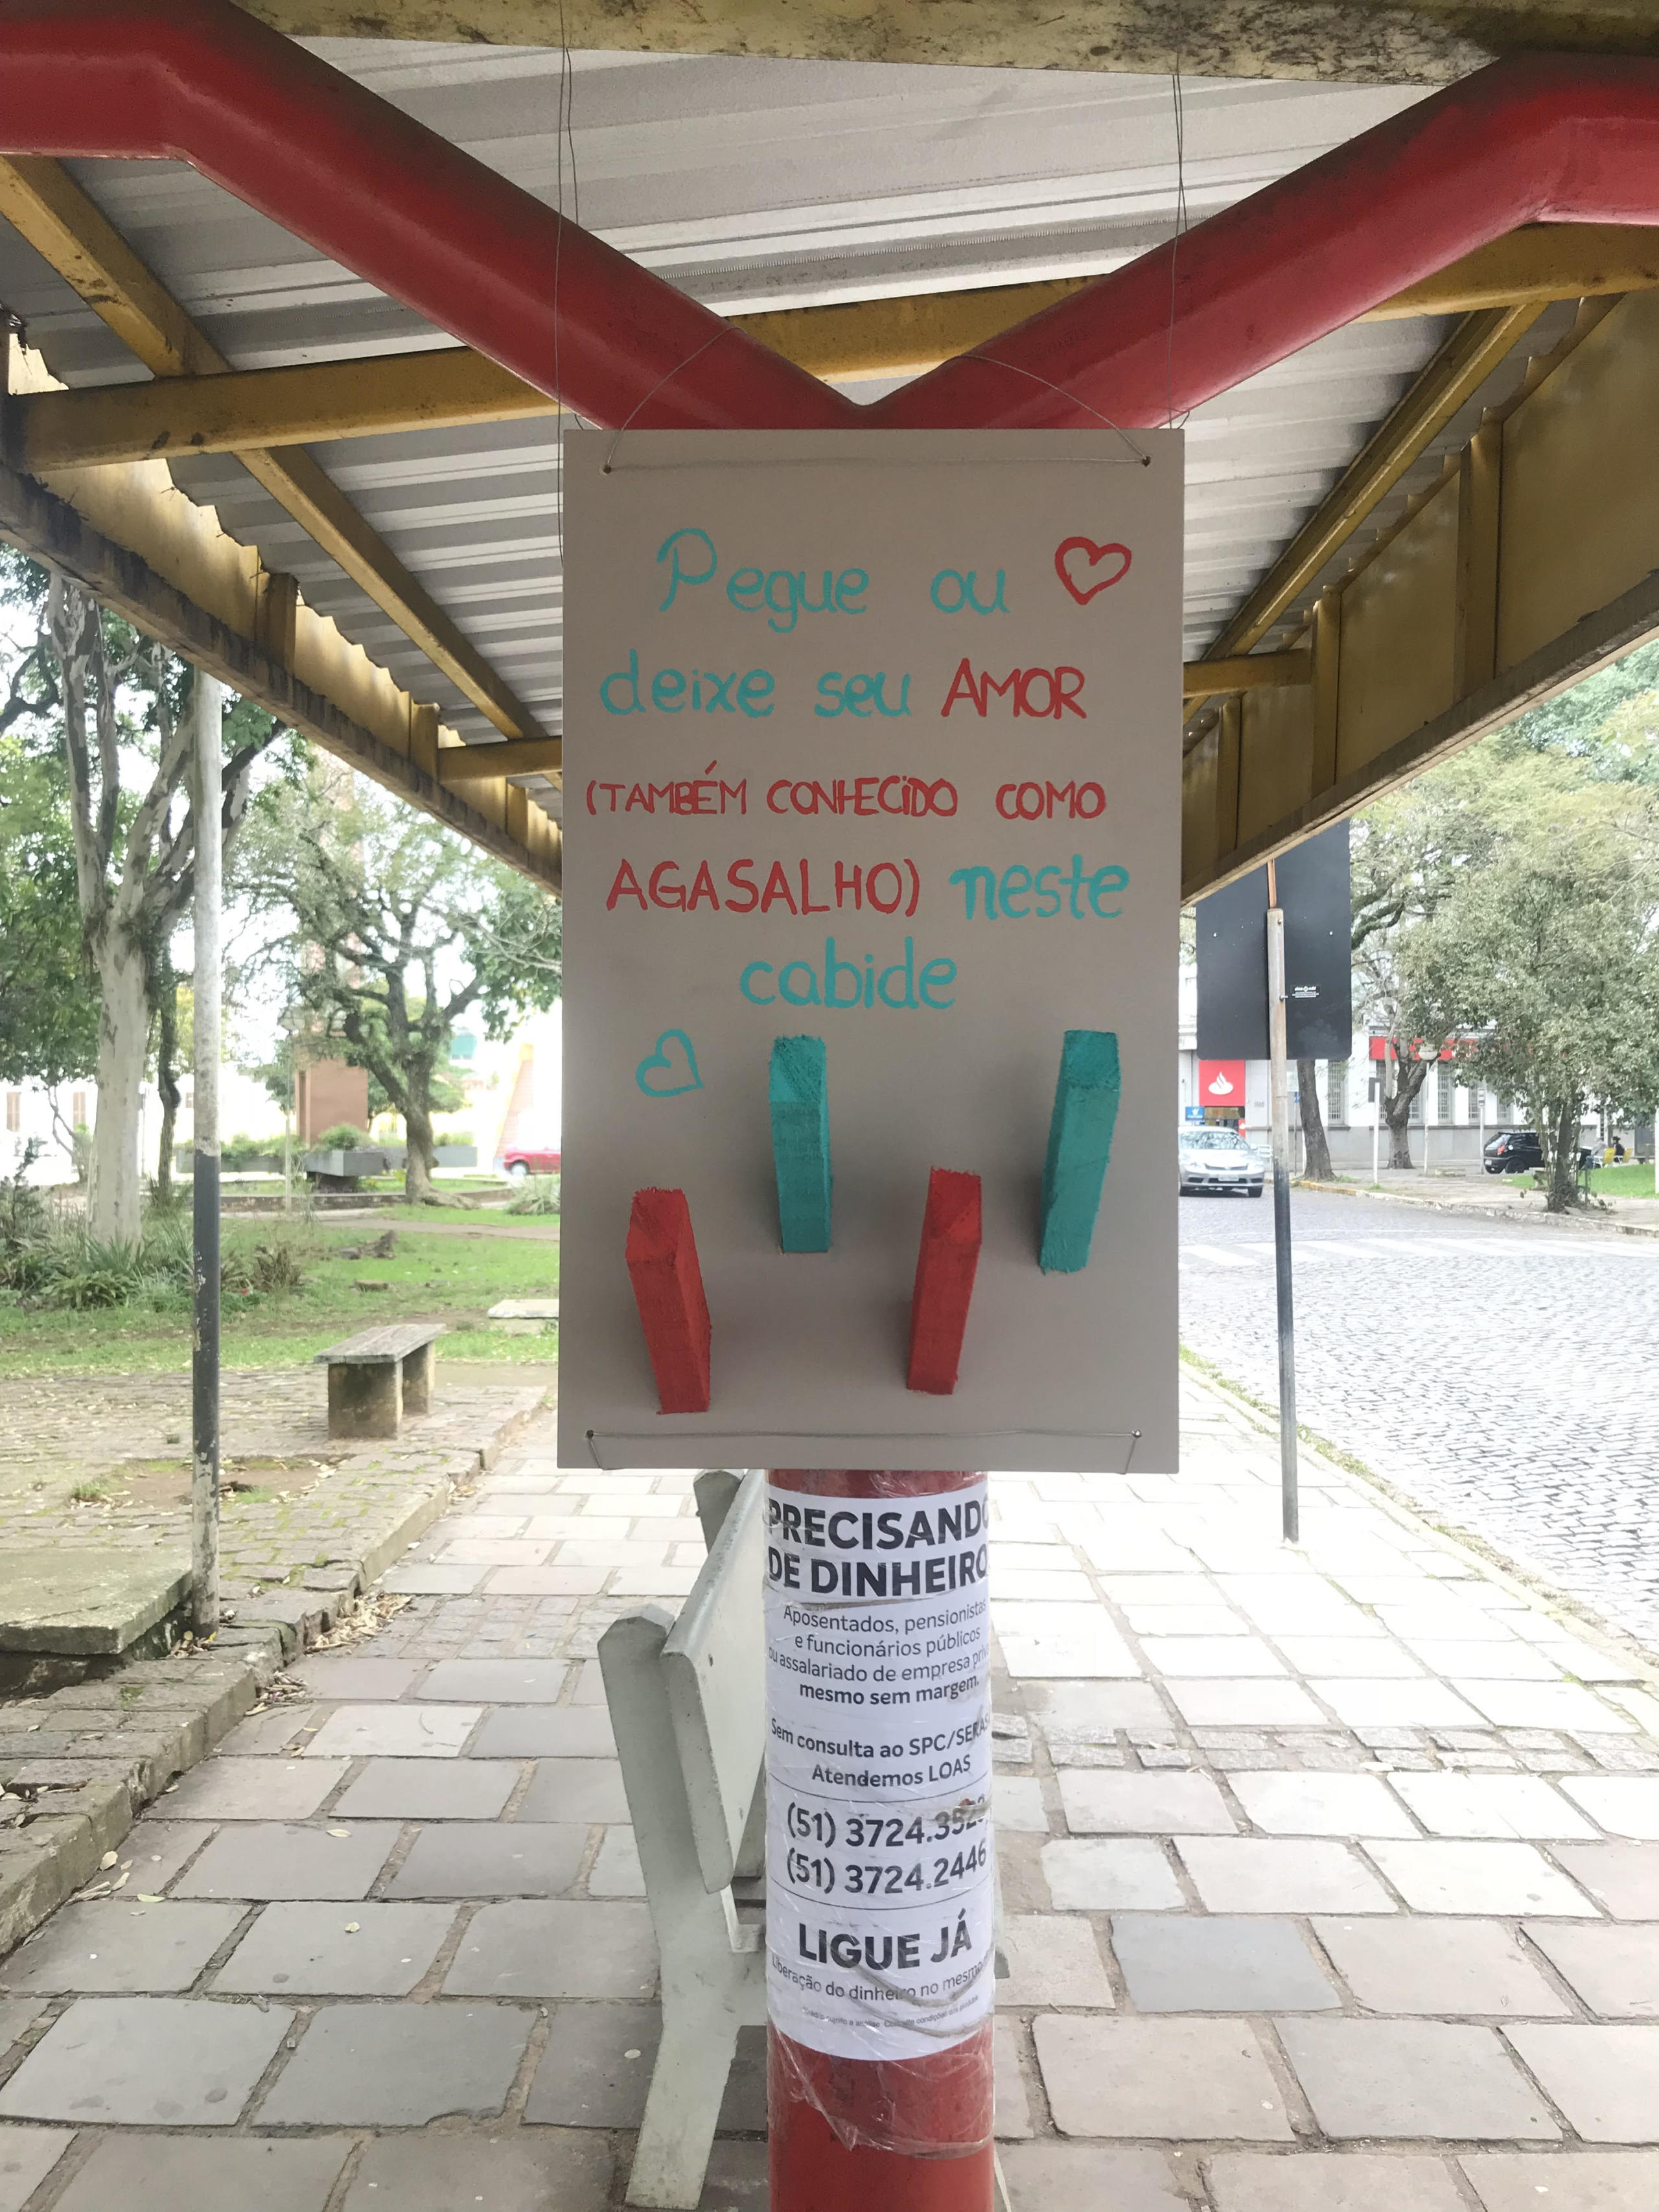 Pegue ou
deixe seu AMOR
(TAMBÉM CONHECIDO COMO
AGASALHO) neste
cabide
PRECISANDO
DE DINHEIRO
Aposentados, pensionistas
e funcionários públicos
ou assalariado de empresa
mesmo sem margem.
Sem consulta ao SPC/SERAS
Atendemos LOAS
(51) 3724.352
(51) 3724.2446
LIGUE JÁ
Liberação do dinheiro no mesmo